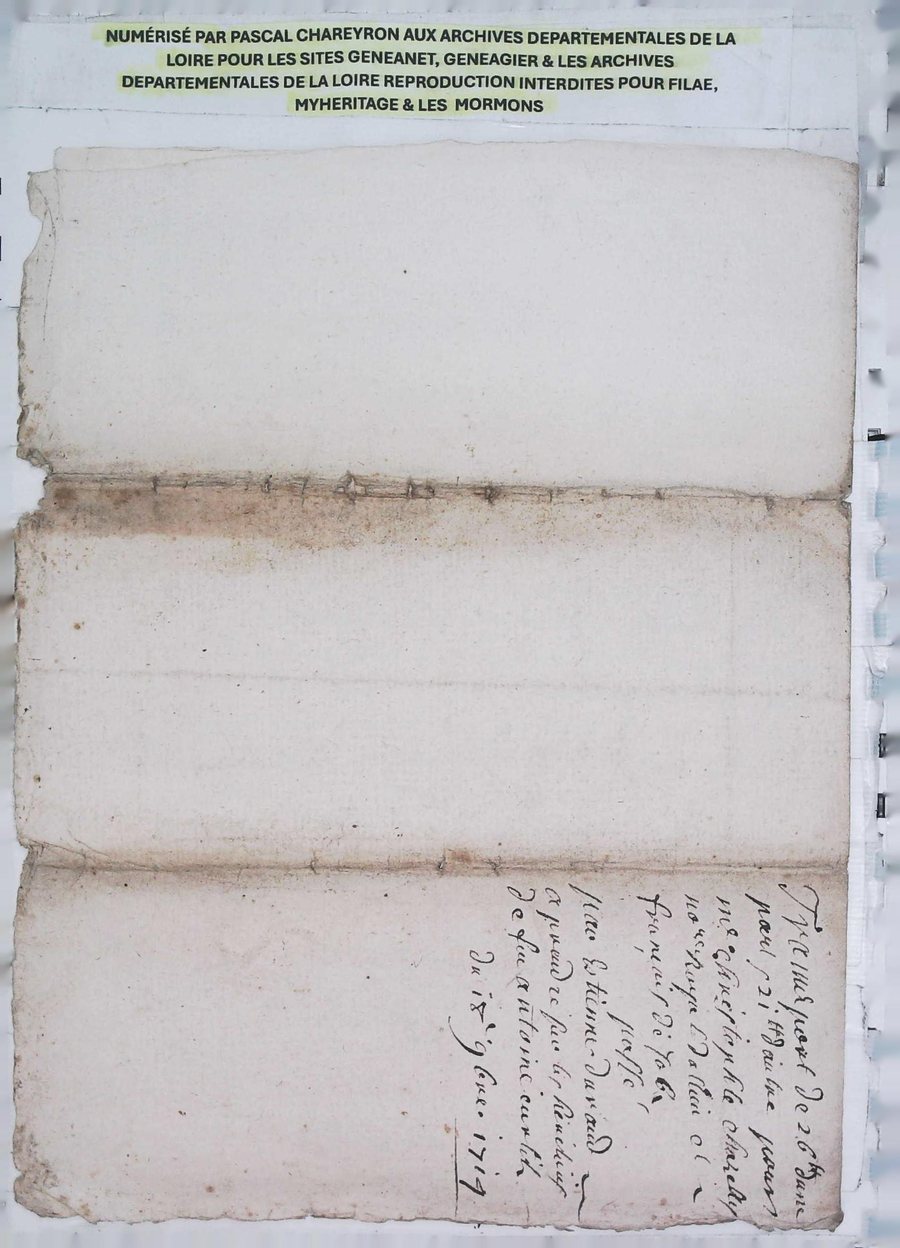 NUMÉRISÉ PAR PASCAL CHAREYRON AUX ARCHIVES DEPARTEMENTALES DE LA
LOIRE POUR LES SITES GENEANET, GENEAGIER & LES ARCHIVES
DEPARTEMENTALES DE LA LOIRE REPRODUCTION INTERDITES POUR FILAE,
MYHERITAGE & LES MORMONS
Transport de 26ᵗᵗ dune
part & 21ᵗᵗ dautre pour
mᵉ
noʳᵉ royal & et
francois de
passé
par Estienne durand
a prendre sur les
de feu antoine
du 18ᵉ 9bre 1719